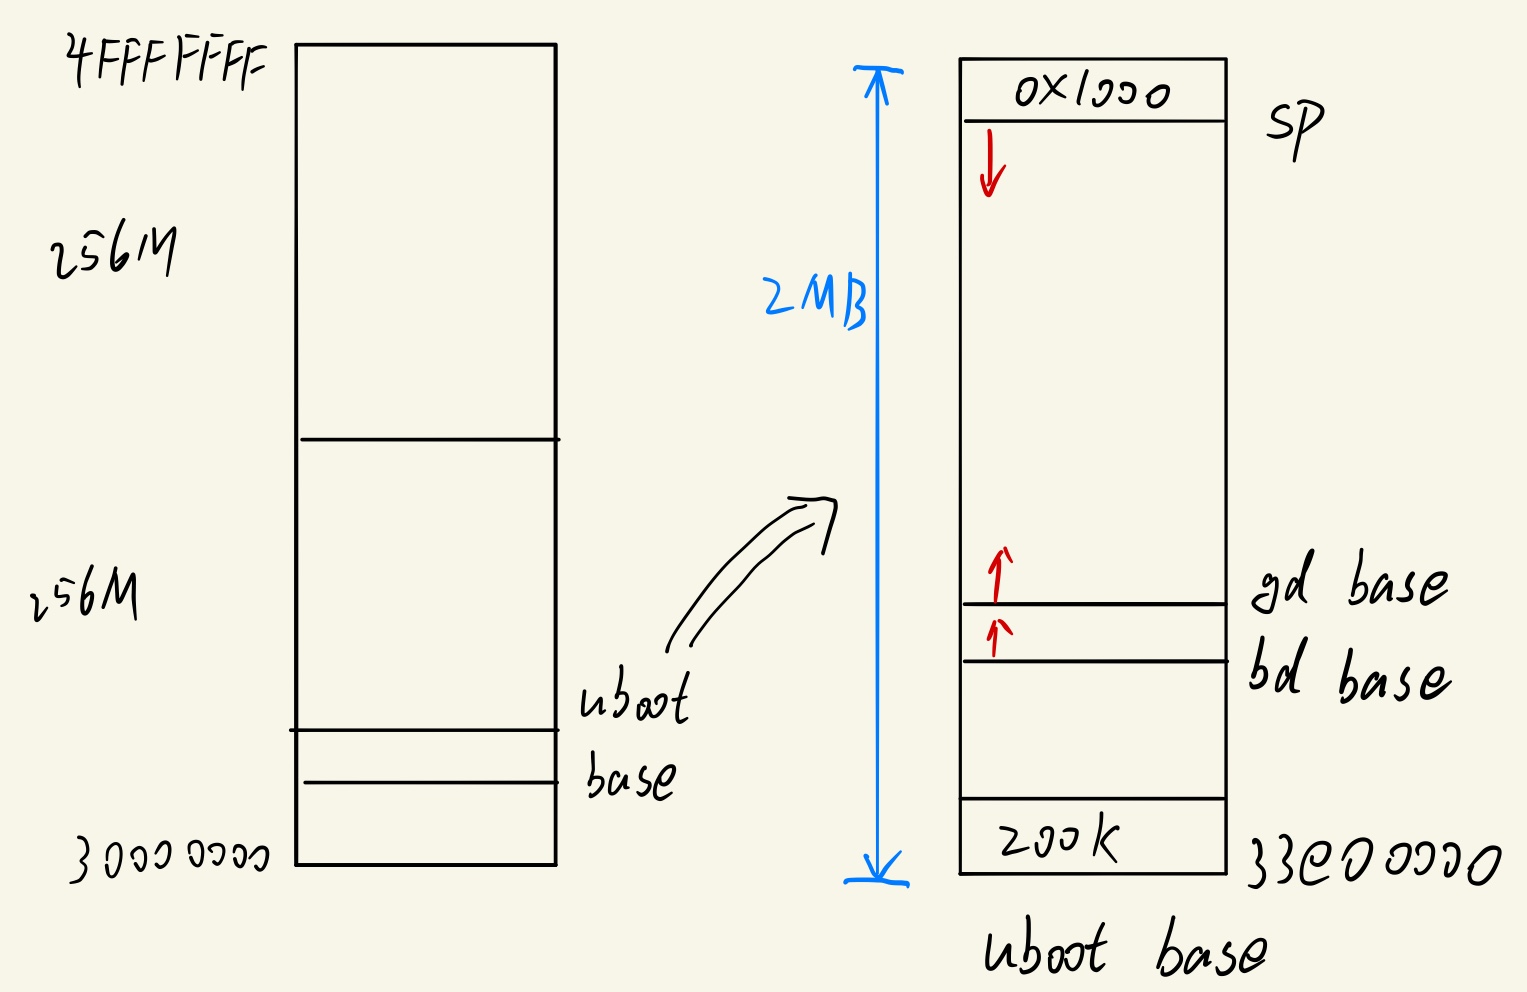 4FFF FFFF
256M
256M
uboot
base
3000 0000
2MB
0x1000
SP
gd base
bd base
200K
33e0 0000
uboot base